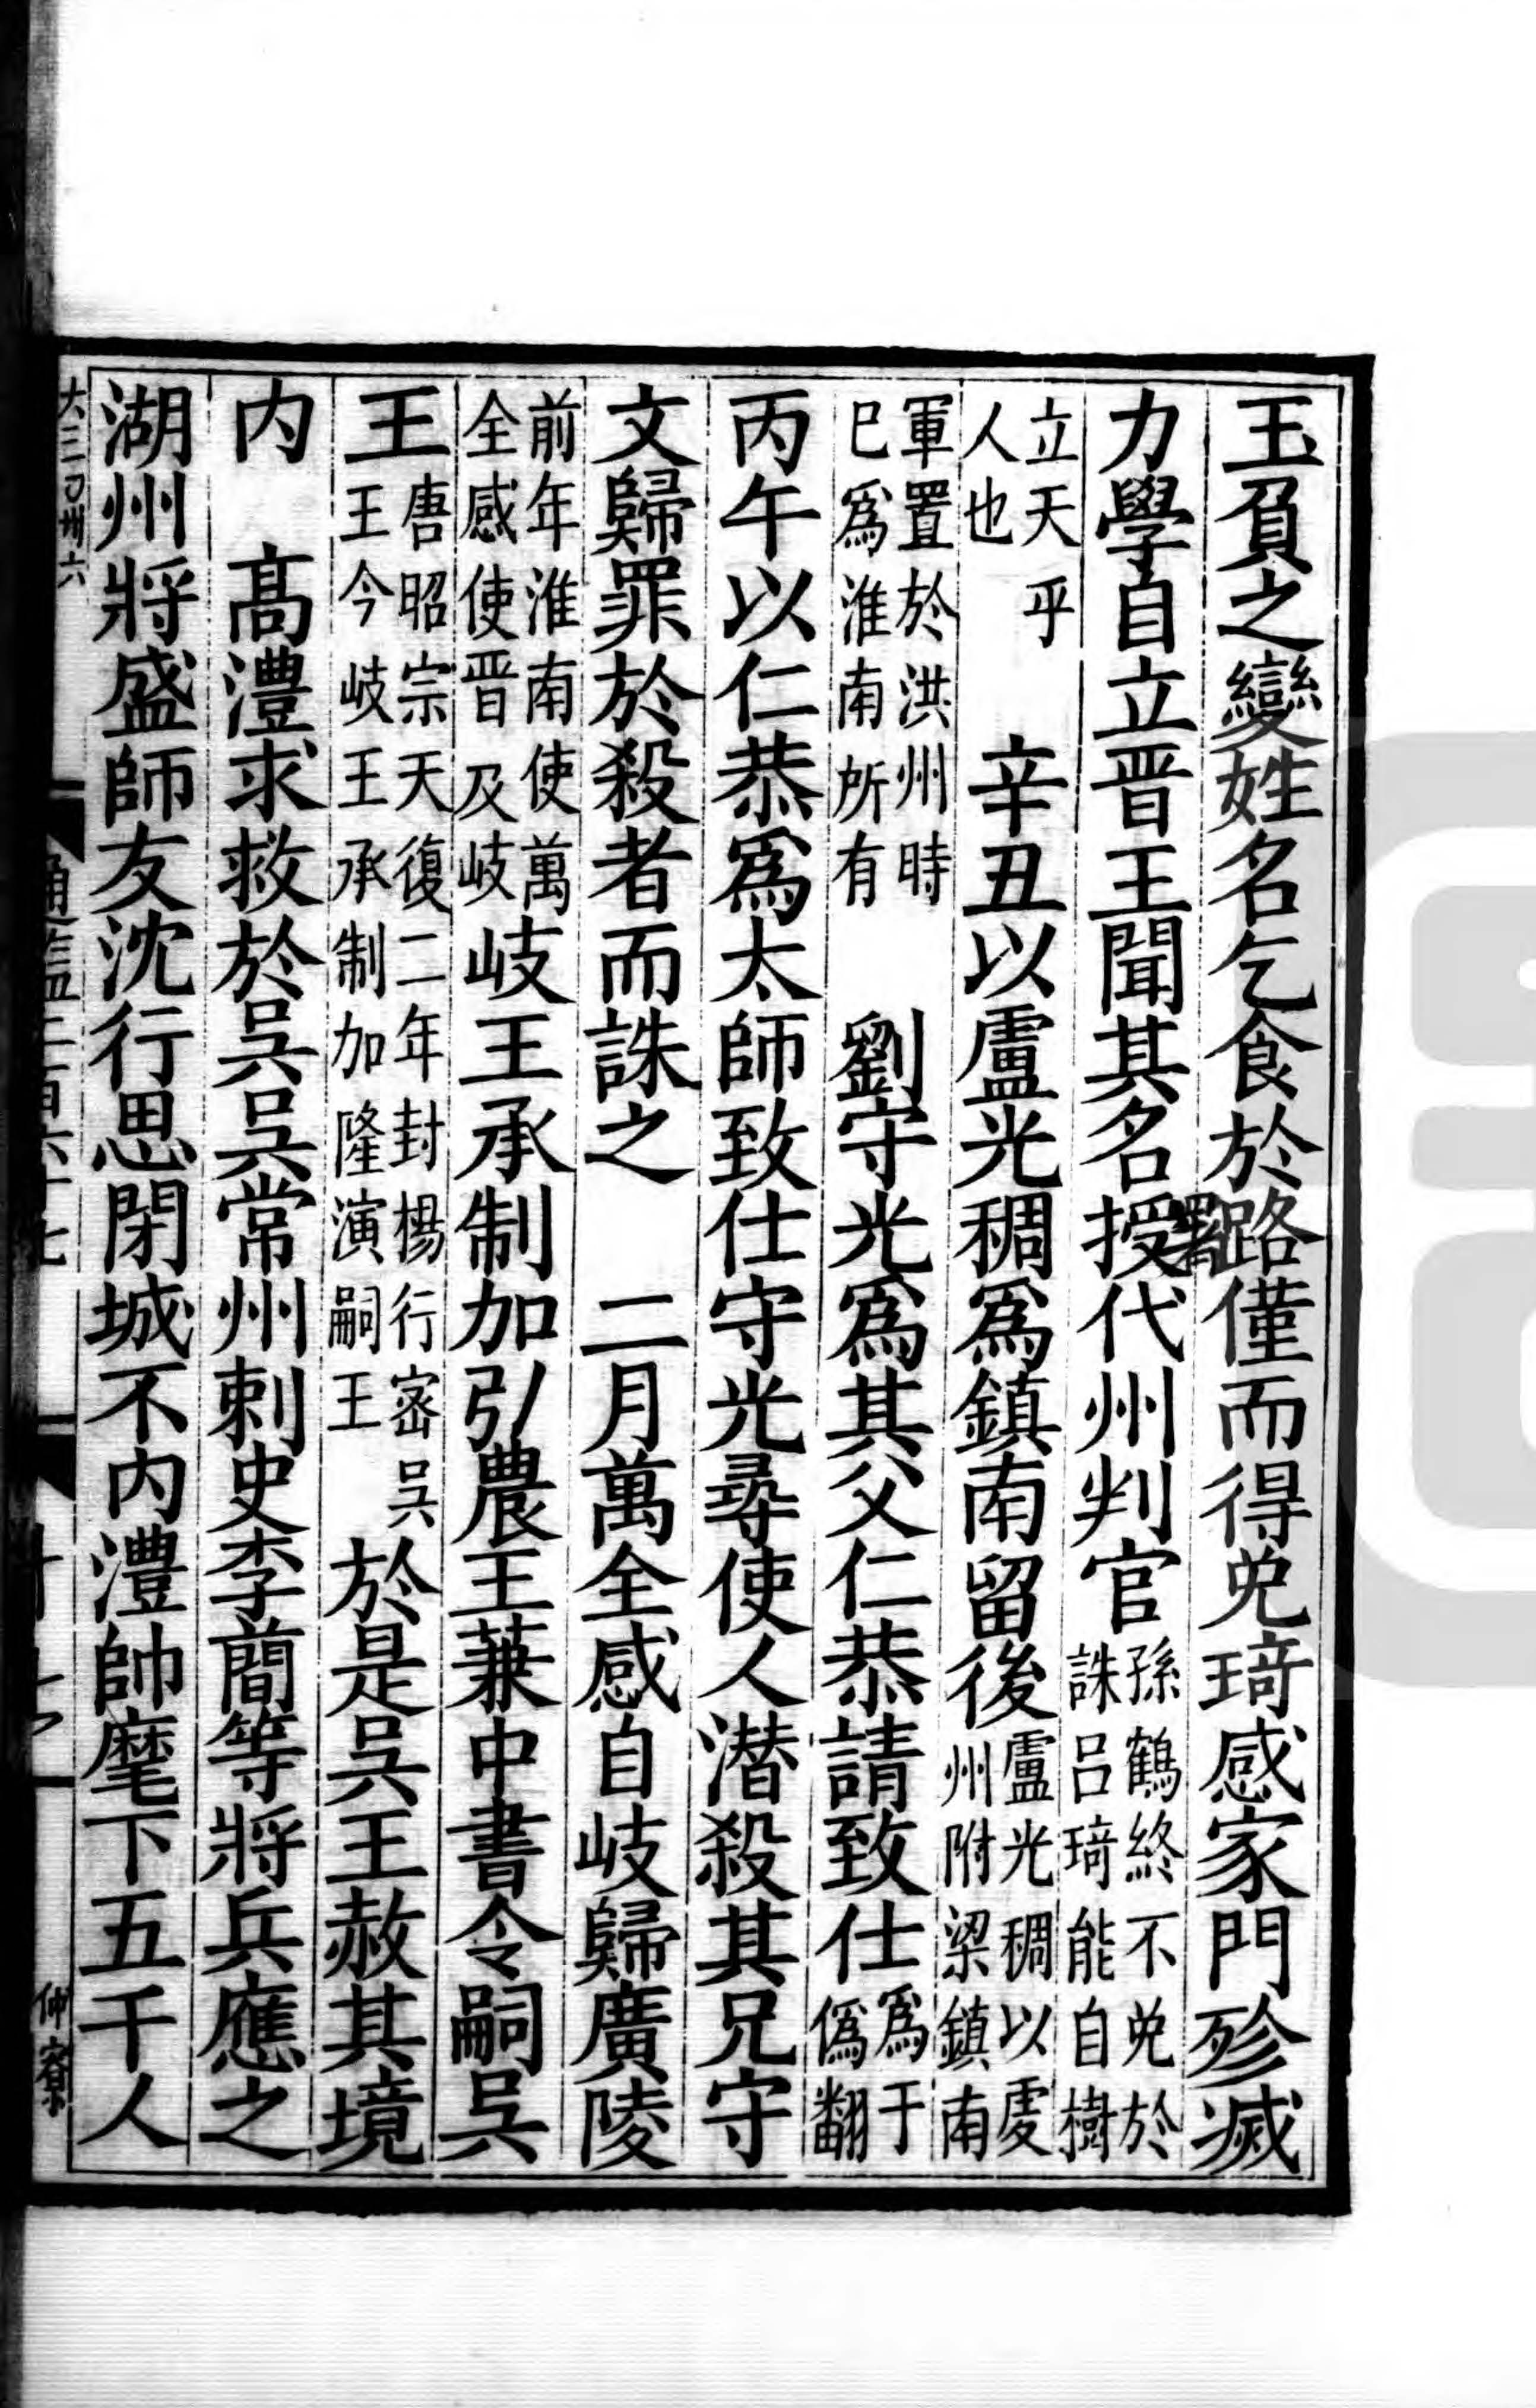 玉負之變姓名乞食於路僅而得免琦感家門殄滅
力學自立晋王聞其名授代州判官孫鶴終不免於誅吕琦能自樹
立天乎人也 辛丑以盧光稠爲鎮南留後盧光稠以䖍州附梁鎮南
軍置於洪州時巳爲淮南所有 劉守光爲其父仁恭請致仕爲于僞翻
丙午以仁恭爲太師致仕守光尋使人潜殺其兄守
文歸罪於殺者而誅之 二月萬全感自岐歸廣陵
前年淮南使萬全感使晋及岐岐王承制加弘農王蒹中書令嗣吳
王唐昭宗天復二年封楊行宻吳王今岐王承制加隆演嗣王於是吳王赦其境
内 髙澧求救於吳吳常州刺史李簡等將兵應之
湖州將盛師友沈行思閉城不内澧帥麾下五千人
仲寮